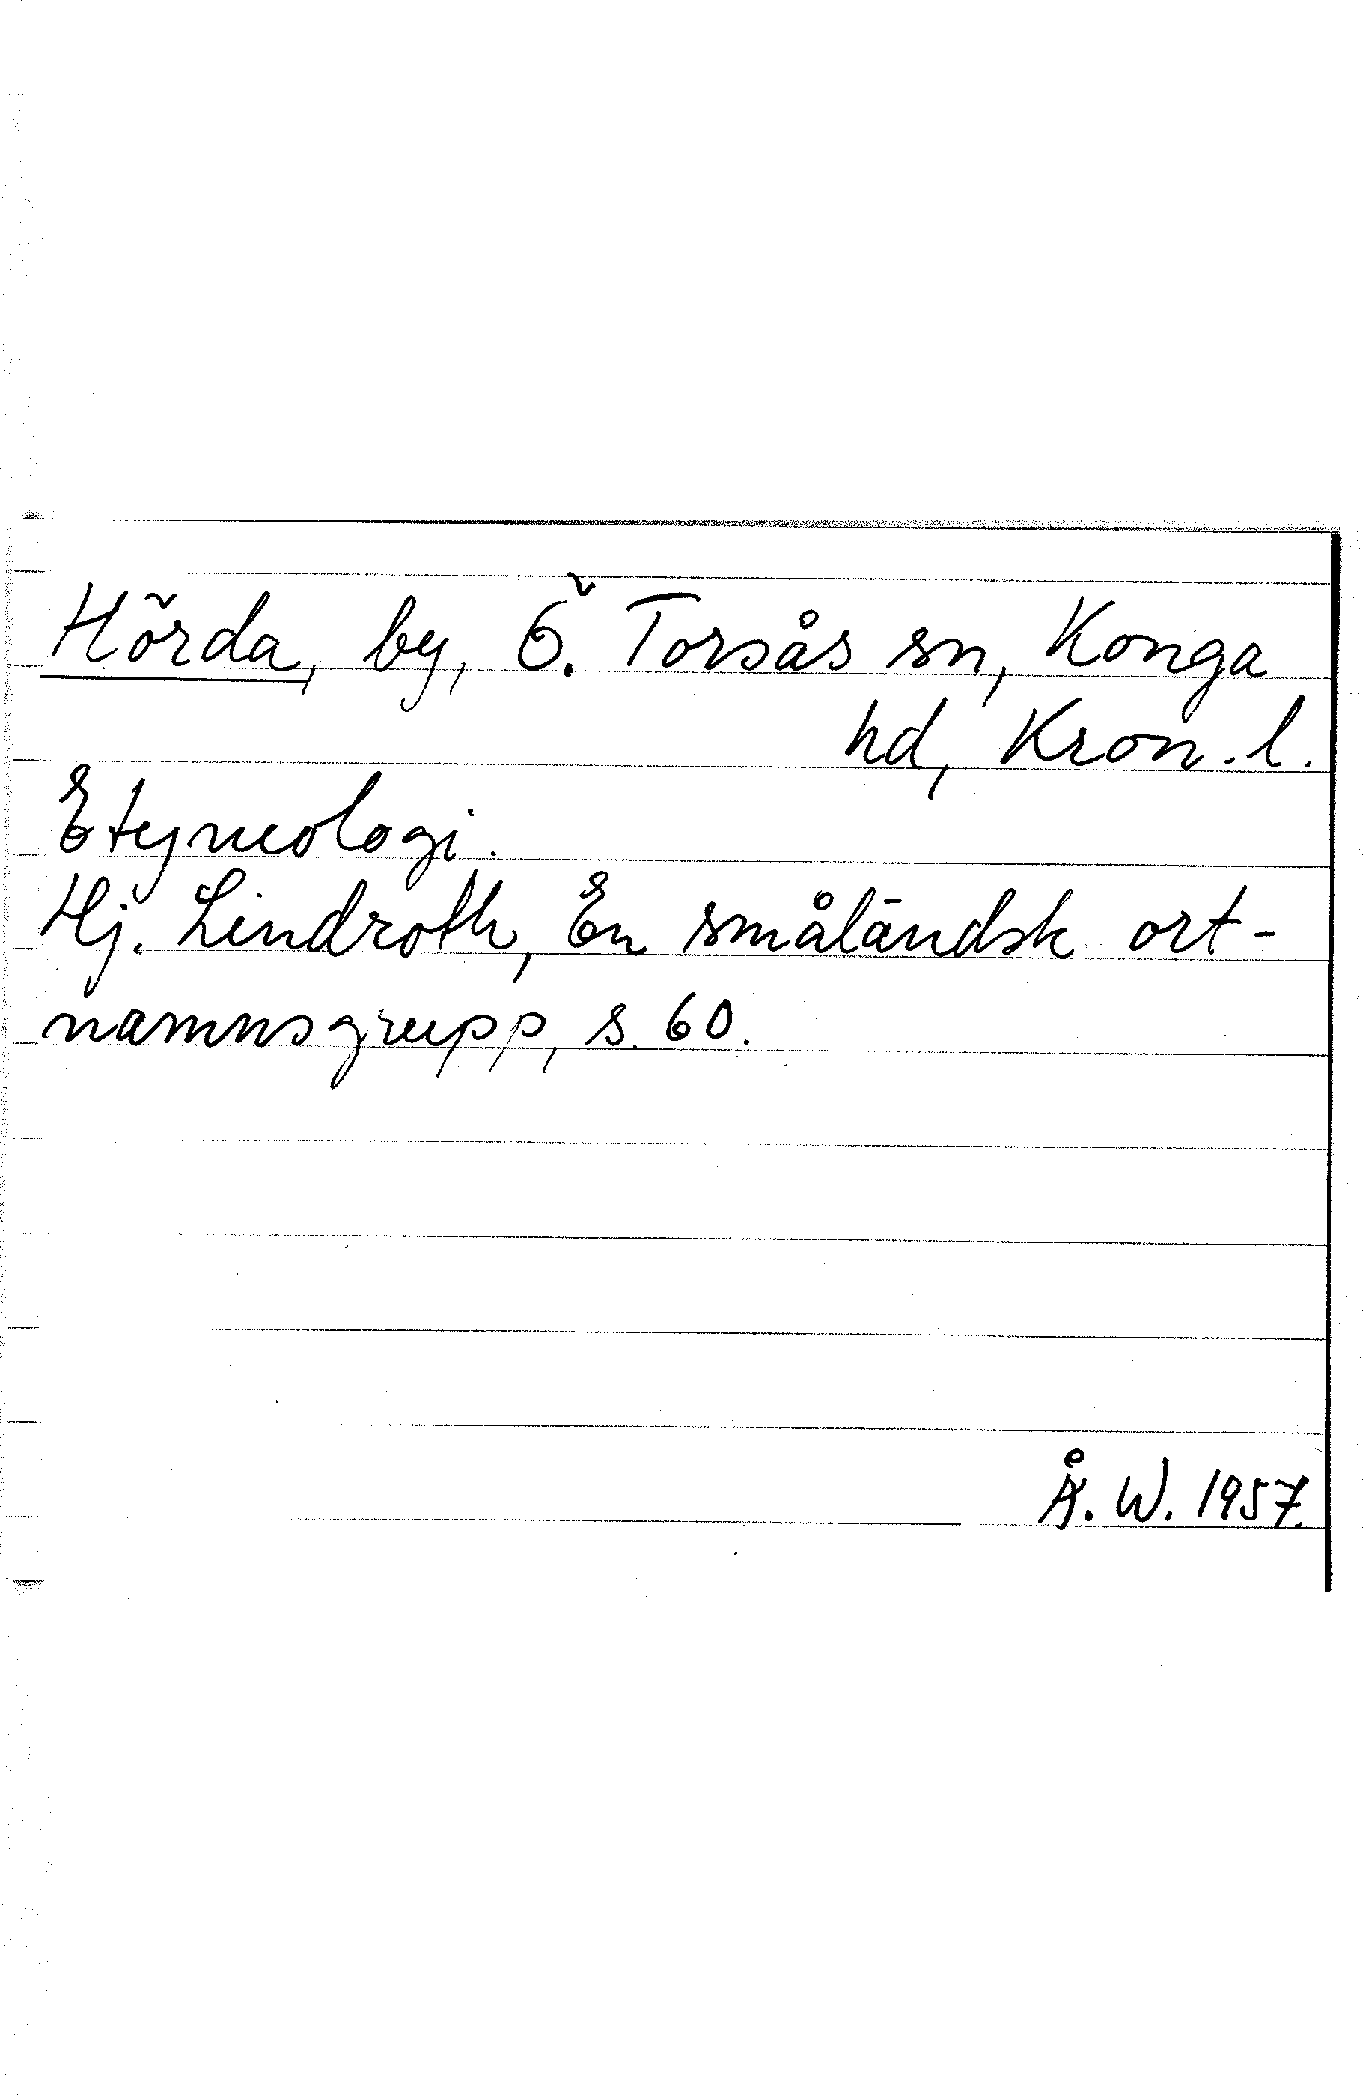 Hörda, by, Ö. Torsås sn, Konga
hd, Kron. l.
Etymologi.
Hj. Lindroth, En småländsk ort-
namnsgrupp, s. 60.
Å. W. 1957.